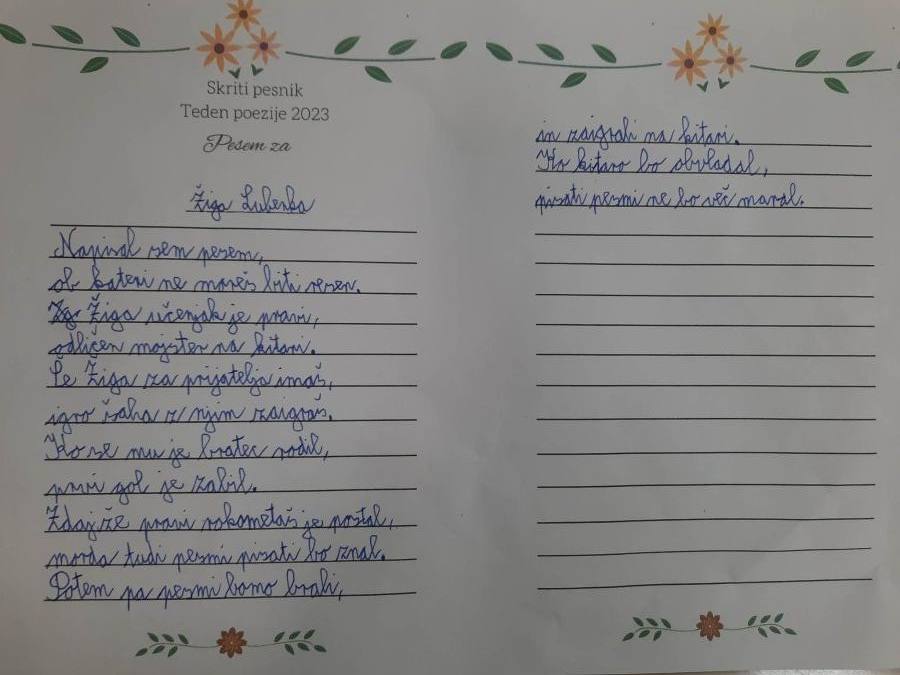 Skriti pesnik
Teden poezije 2023
Pesem za
Žiga Lubenka
Napisal sem pesem,
ob kateri ne moreš biti resen.
Žiga učenjak je pravi,
odličen mojster na kitari.
Če Žiga za prijatelja imaš,
igro šaha z njim zaigraš.
Ko se mu je bratec rodil,
prvi gol je zabil.
Zdaj že pravi rokometaš je postal,
morda tudi pesmi pisati bo znal.
Potem pa pesmi bomo brali,
in zaigrali na kitari.
Ko kitaro bo obvladal,
pisati pesmi ne bo več maral.